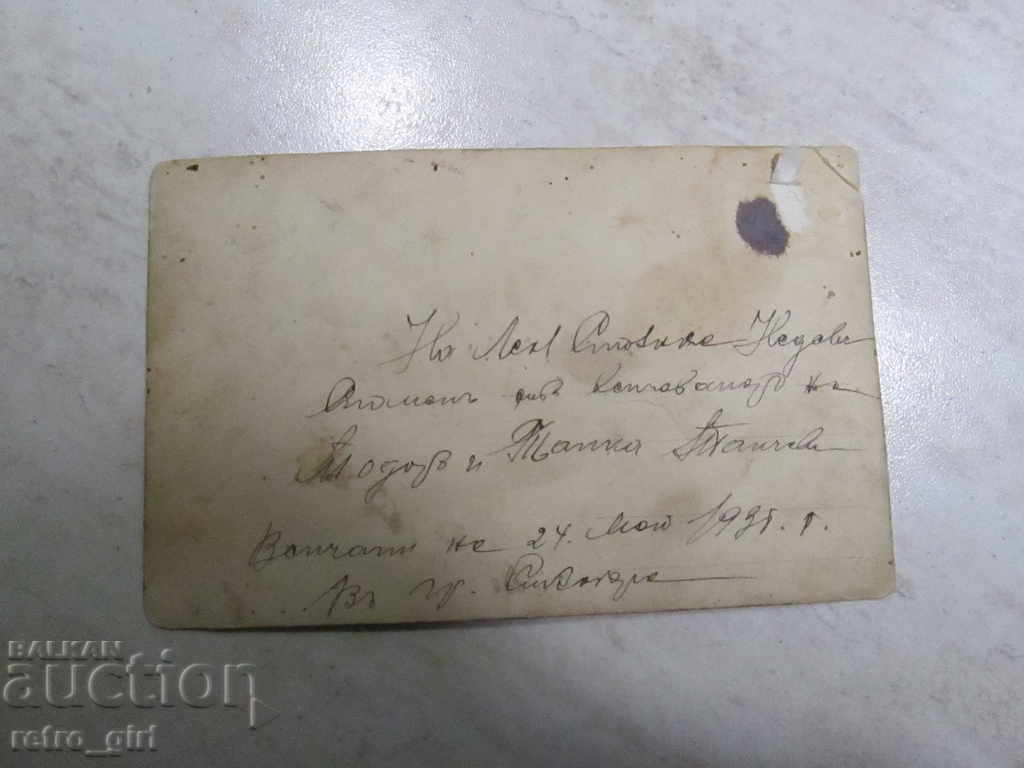 На Лени Стоянка Недеви
Споменъ отъ венчаването на
Тодоръ и Танка Танчеви
Венчани на 24. Май 1935. г.
Въ гр.
BALKAN
auction
retro_girl